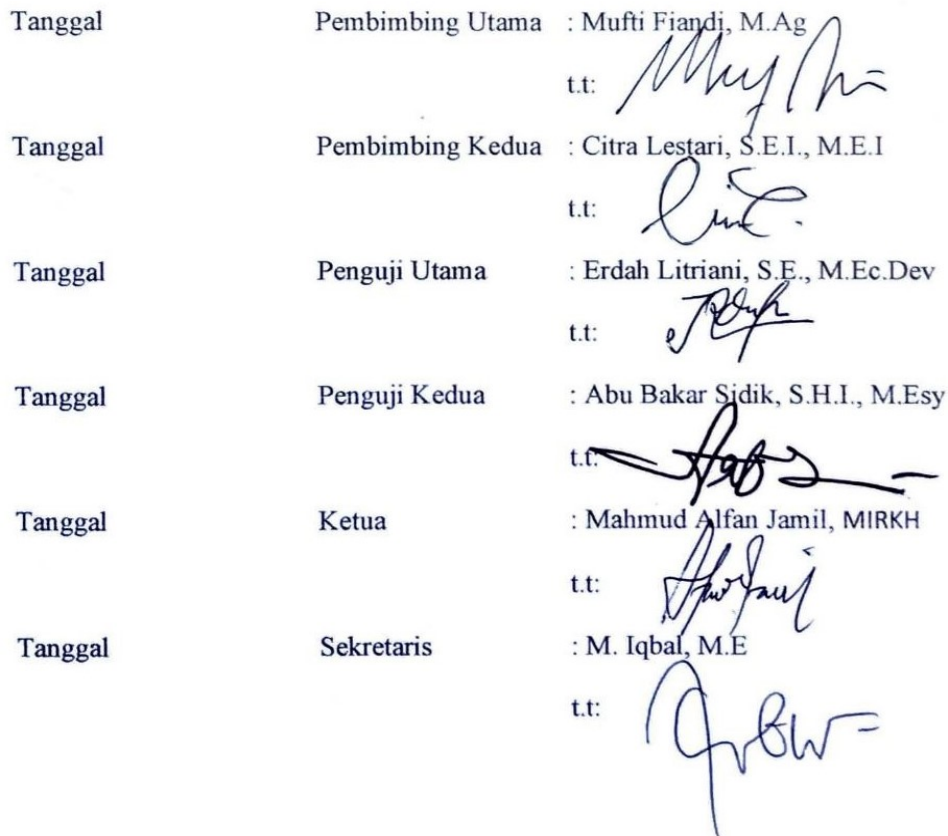 Tanggal Pembimbing Utama : Mufti Fiandi, M.Ag
t.t:
Tanggal Pembimbing Kedua : Citra Lestari, S.E.I., M.E.I
t.t:
Tanggal Penguji Utama : Erdah Litriani, S.E., M.Ec.Dev
t.t:
Tanggal Penguji Kedua : Abu Bakar Sidik, S.H.I., M.Esy
t.t:
Tanggal Ketua : Mahmud Alfan Jamil, MIRKH
t.t:
Tanggal Sekretaris : M. Iqbal, M.E
t.t: